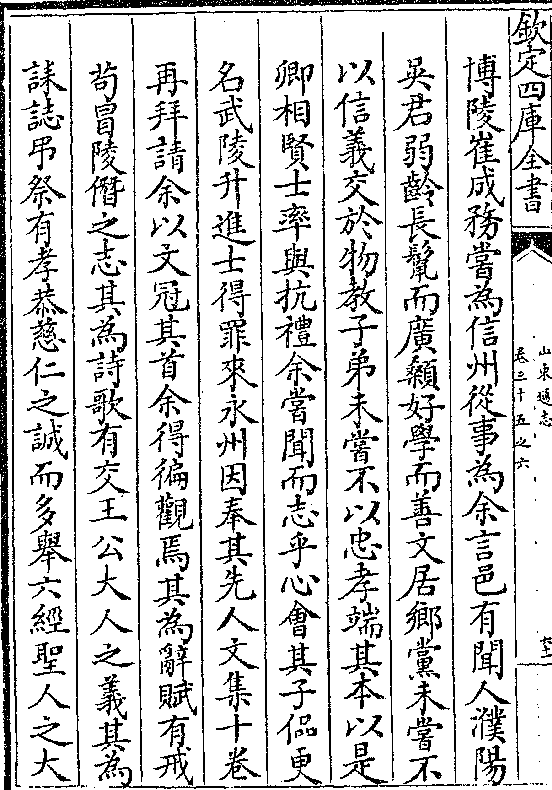 欽定四庫全書
山東通志
卷三十五之六
博陵崔成務嘗為信州從事為余言邑有聞人濮陽
吳君弱齡長鬣而廣顙好學而善文居鄉黨未嘗不
以信義交於物教子弟未嘗不以忠孝端其本以是
卿相賢士率與抗禮余嘗聞而志乎心會其子偘更
名武陵升進士得罪來永州因奉其先人文集十卷
再拜請余以文冠其首余得徧觀焉其為辭賦有戒
茍冒陵僭之志其為詩歌有交王公大人之義其為
誄誌弔祭有孝恭慈仁之誠而多舉六經聖人之大